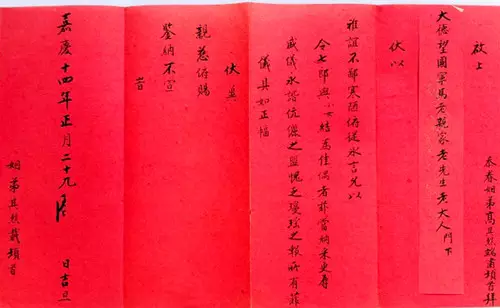 啟上
忝眷姻弟高具烈肅頓首拜
大德望國軍馬老親家老先生老大人門下
伏以
雅誼不鄙寒陋俯從永言允以
令七郎與小女結為佳偶者菲當納采更辱
盛儀永諧伉儷之盟愧乏瓊瑤之報所有菲
儀具如正幅
伏冀
親慈俯賜
鑒納不宣
旹
嘉慶十四年正月二十九日吉旦
姻弟具烈載頓首